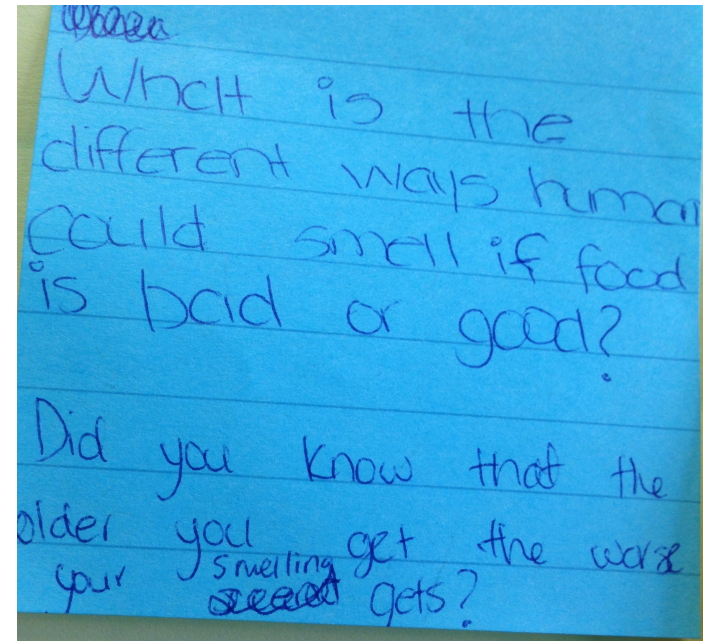 What is the
different ways human
could smell if food
is bad or good?
Did you know that the
older you get the worse
your smelling gets?